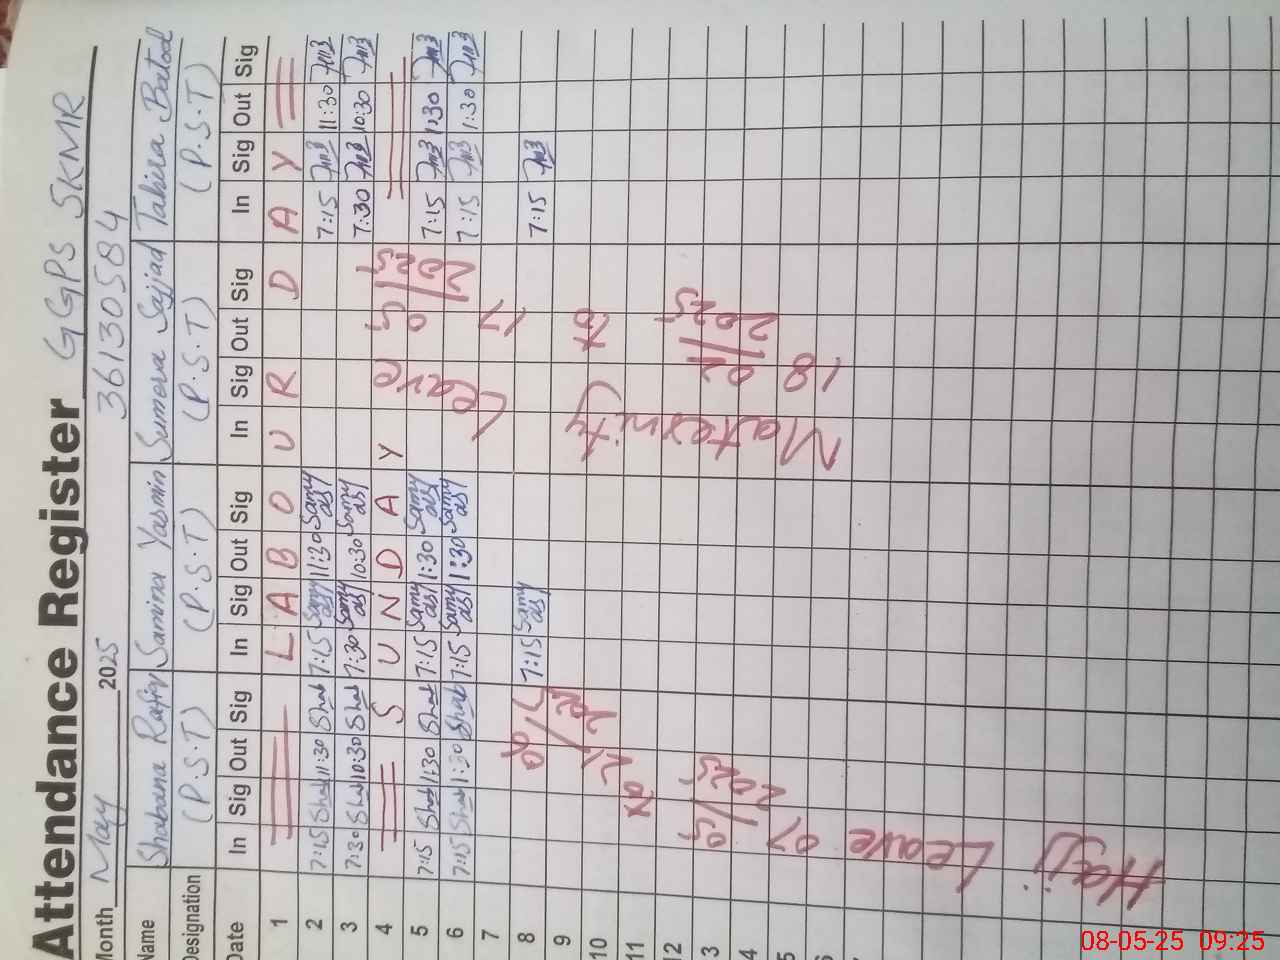 Attendance Register GGPS SKMR
Month May 2025 36130584
Name Shabana Rafiq Samina Yasmin Sumera Sajjad Tahira Batool
Designation (P.S.T) (P.S.T) (P.S.T) (P.S.T)
Date In Sig Out Sig In Sig Out Sig In Sig Out Sig In Sig Out Sig
1 L A B O U R D A Y
2 7:15 Shab 11:30 Shab 7:15 Samy 11:30 Samy 7:15 11:30
3 7:30 Shab 10:30 Shab 7:30 Samy 10:30 Samy 7:30 10:30
4 S U N D A Y
5 7:15 Shab 1:30 Shab 7:15 Samy 1:30 Samy 7:15 1:30
6 7:15 Shab 1:30 Shab 7:15 Samy 1:30 Samy 7:15 1:30
7
8 7:15 Samy 7:15
9
10
11
12
3
4
5
6
Hajj Leave
07/05
2025
to
Maternity Leave
18
2025
to
17
2025
08-05-25 09:25